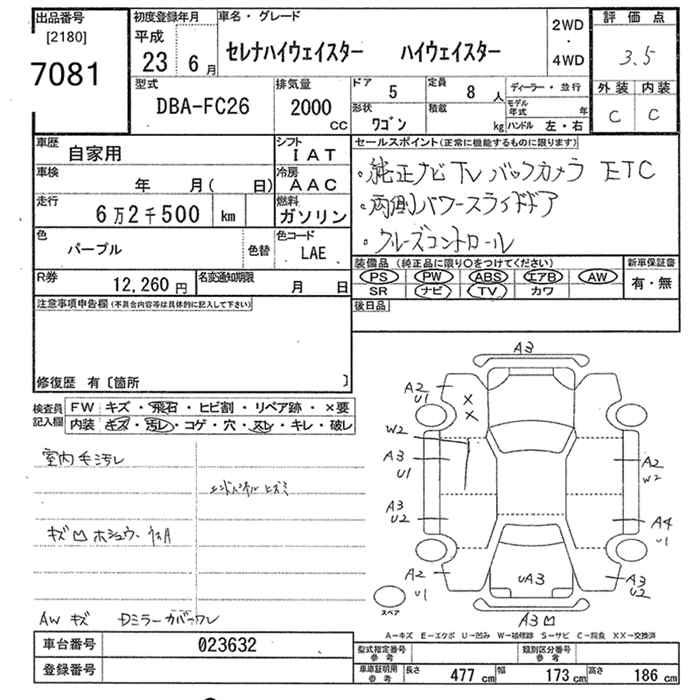 出品番号
[2180]
7081
初度登録年月
平成
23 6月
車名・グレード
セレナハイウェイスター ハイウェイスター
2WD
・
4WD
評価点
3.5
外装 内装
C C
型式
DBA-FC26
排気量
2000
CC
ドア
5
定員
8人
ディーラー・並行
形状
ワゴン
積載
kg
モデル年式 年
ハンドル 左・右
車歴
自家用
シフト
IAT
車検
年 月( 日)
冷房
AAC
走行
6万2千500 km
燃料
ガソリン
色
パープル
色替
色コード
LAE
R券
12,260円
名変通知期限
月 日
セールスポイント(正常に機能するものに限ります)
・純正ナビ TV バックカメラ ETC
・両側パワースライドドア
・クルーズコントロール
装備品(純正品に限り○をつけてください)
新車保証書
PS PW ABS エアB AW
SR ナビ TV カワ
有・無
後日品
注意事項申告欄(不具合内容等は具体的に記入して下さい)
修復歴 有〔箇所 〕
検査員記入欄
FW キズ・飛石・ヒビ割・リペア跡・×要
内装 キズ・汚レ・コゲ・穴・スレ・キレ・破レ
室内毛汚レ
エンドパネルヒズミ
AW キズ Dミラーカバーワレ
A3
A2
U1
W2
A3
U1
A3
U2
A2
U1
A2
W2
A4
U1
A3
U2
UA3
A3凹
スペア
A→キズ E→エクボ U→凹み W→補修跡 S→サビ C→腐食 XX→交換済
車台番号
023632
登録番号
型式指定番号
参考
類別区分番号
参考
車車証明用
参考
長さ 477cm
幅 173cm
高さ 186cm